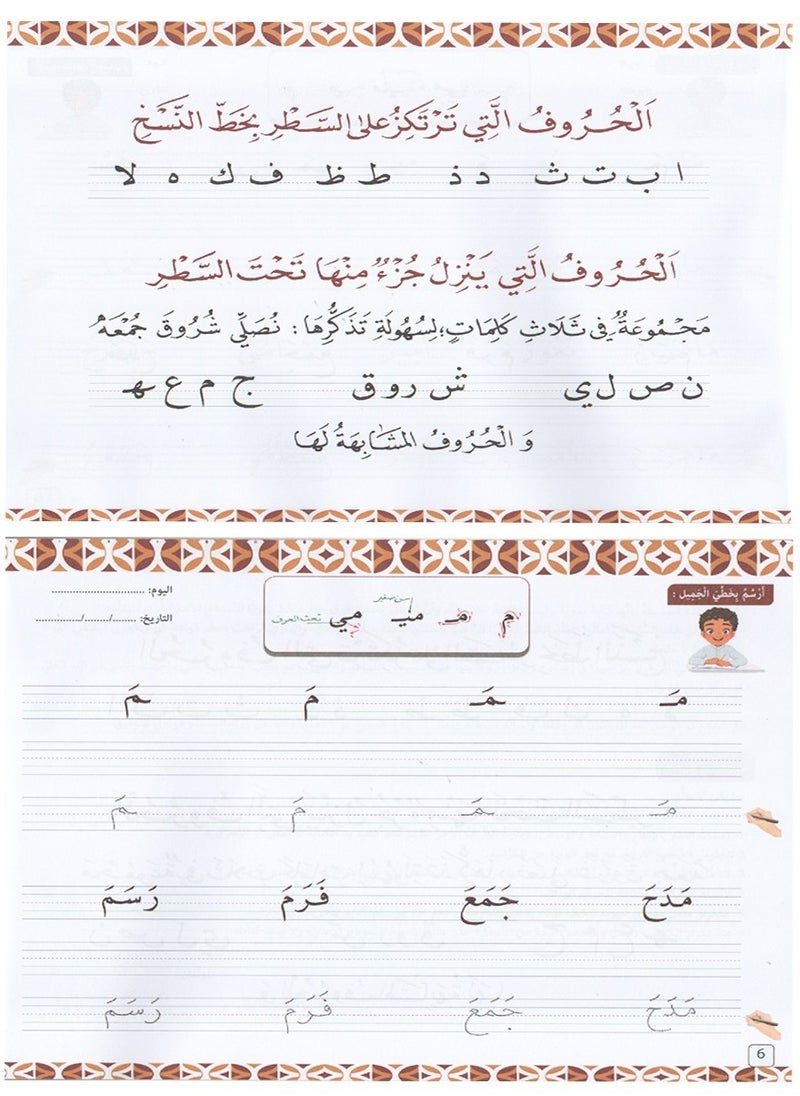 اَلْحُرُوفُ الَّتِي تَرْتَكِزُ عَلَى السَّطْرِ بِخَطِّ النَّسْخِ
ا ب ت ث د ذ ط ظ ف ك ه لا
اَلْحُرُوفُ الَّتِي يَنْزِلُ جُزْءٌ مِنْهَا تَحْتَ السَّطْرِ
مَجْمُوعَةٌ فِي ثَلَاثِ كَلِمَاتٍ؛ لِسُهُولَةِ تَذَكُّرِهَا : نُصَلِّي شُرُوقَ جُمْعَه
ن ص ل ي ش ر و ق ج م ع ه
وَ الْحُرُوفُ الْمُشَابِهَةُ لَهَا
أَرْسُمُ بِخَطِّيَ الْجَمِيلِ :
سن صغير
م مـ ميـ مي تحت الحرف
اليوم: ..............................
التاريخ: ......../........./...............
مَـ ـمَـ مَ ـمَ
مَـ ـمَـ مَ ـمَ
مَدَحَ جَمَعَ فَرَمَ رَسَمَ
مَدَحَ جَمَعَ فَرَمَ رَسَمَ
6